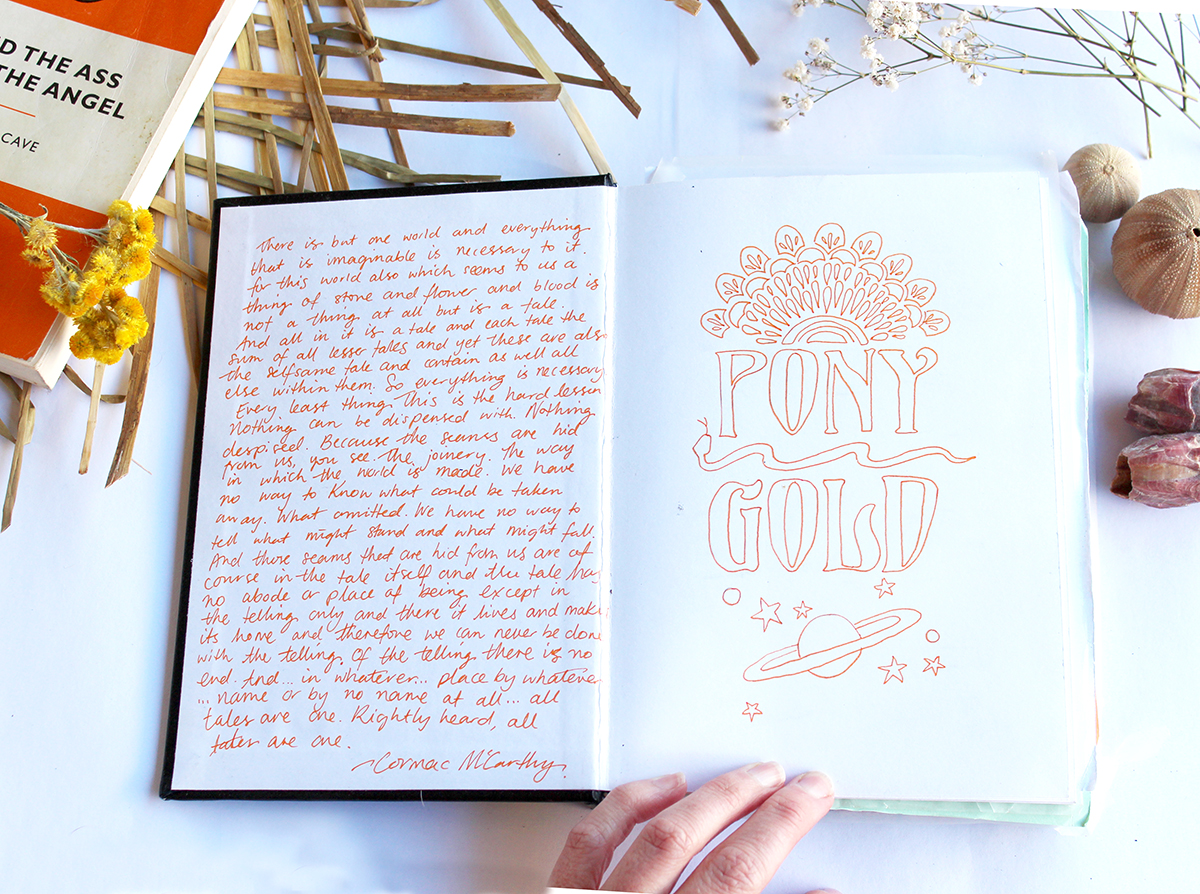 D THE ASS
THE ANGEL
CAVE
There is but one world and everything
that is imaginable is necessary to it.
for this world also which seems to us a
thing of stone and flower and blood is
not a thing at all but is a tale.
And all in it is a tale and each tale the
sum of all lesser tales and yet these are also
the selfsame tale and contain as well all
else within them. So everything is necessary
Every least thing. This is the hard lesson
Nothing can be dispensed with. Nothing
despised. Because the seams are hid
from us, you see. The joinery. The way
in which the world is made. We have
no way to know what could be taken
away. What omitted. We have no way to
tell what might stand and what might fall.
And those seams that are hid from us are of
course in the tale itself and the tale has
no abode or place of being except in
the telling only and there it lives and makes
its home and therefore we can never be done
with the telling. Of the telling there is no
end. And... in whatever... place by whatever
... name or by no name at all... all
tales are one. Rightly heard, all
tales are one.
~Cormac McCarthy.
PONY
GOLD